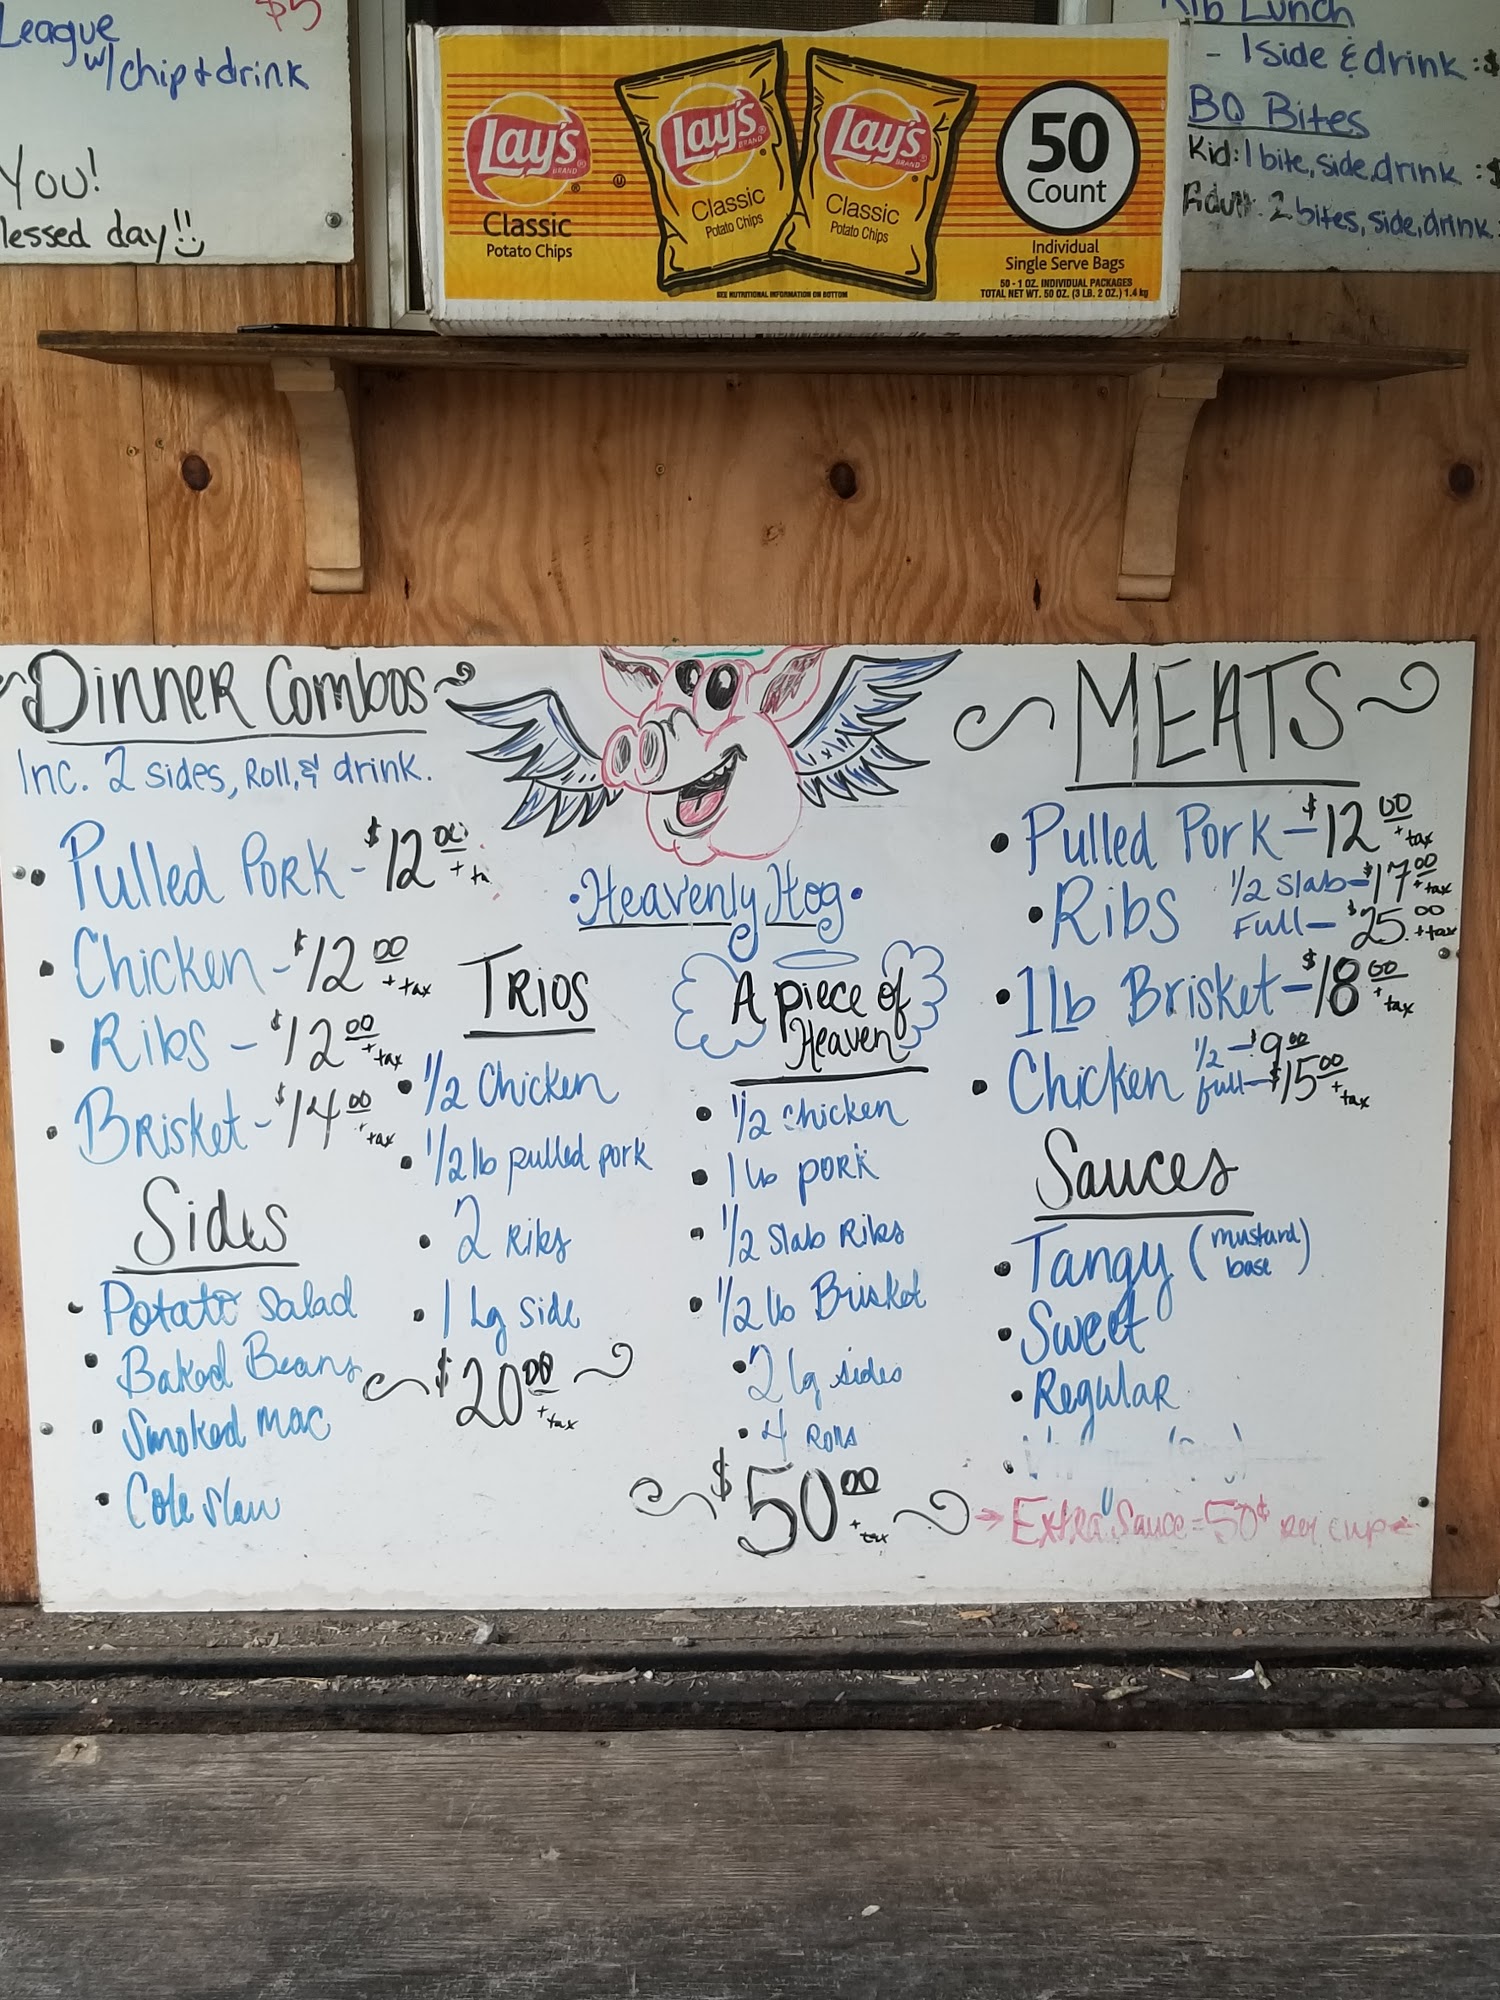 League $5
w/chip & drink
You!
lessed day!!
Lay's
BRAND
Classic
Potato Chips
Lay's
BRAND
Classic
Potato Chips
Lay's
BRAND
Classic
Potato Chips
50
Count
Individual
Single Serve Bags
50 - 1 OZ. INDIVIDUAL PACKAGES
TOTAL NET WT. 50 OZ. (3 LB. 2 OZ.) 1.4 kg
SEE NUTRITIONAL INFORMATION ON BOTTOM
Rib Lunch
- 1 side & drink : $
BQ Bites
Kid: 1 bite, side, drink : $
Adult: 2 bites, side, drink :
Dinner Combos
Inc. 2 sides, Roll, & drink.
• Pulled Pork - $12.00 + ta
• Chicken - $12.00 + tax
• Ribs - $12.00 + tax
• Brisket - $14.00 + tax
Sides
• Potato Salad
• Baked Beans
• Smoked mac
• Cole slaw
• Heavenly Hog •
Trios
• 1/2 Chicken
• 1/2 lb pulled pork
• 2 Ribs
• 1 Lg side
$20.00 + tax
A piece of
Heaven
• 1/2 chicken
• 1 lb pork
• 1/2 slab Ribs
• 1/2 lb Brisket
• 2 lg sides
• 4 Rolls
$50.00 + tax
MEATS
• Pulled Pork - $12.00 + tax
• Ribs 1/2 Slab - $17.00 + tax
Full - $25.00 + tax
• 1 Lb Brisket - $18.00 + tax
• Chicken 1/2 - $9.00
full - $15.00 + tax
Sauces
• Tangy (mustard base)
• Sweet
• Regular
Extra Sauce = 50¢ per cup